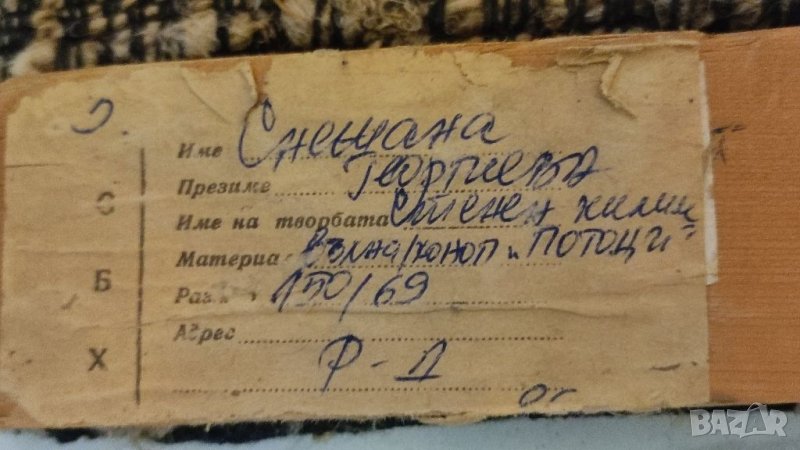 Име Снежана
Презиме Георгиева
Име на творбата Стенен килим
Материа Вълна/коноп и "Потоци"
Раз 150/69
Адрес
Р-Д
С
Б
Х
BAZAR